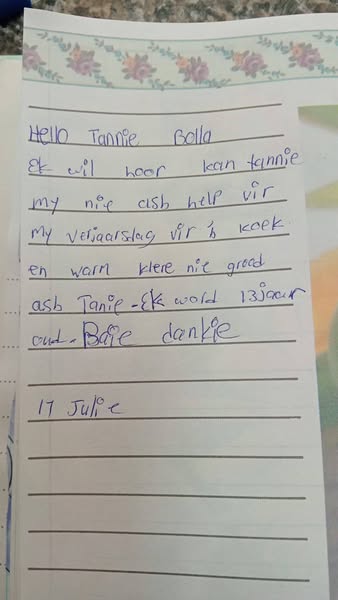 Hello Tannie Bolla
Ek wil hoor kan tannie
my nie asb help vir
my verjaarslag vir 'n koek
en warm klere nie groad
asb Tanie-Ek wold 13jaar
oud-Baie dankie
17 Julie